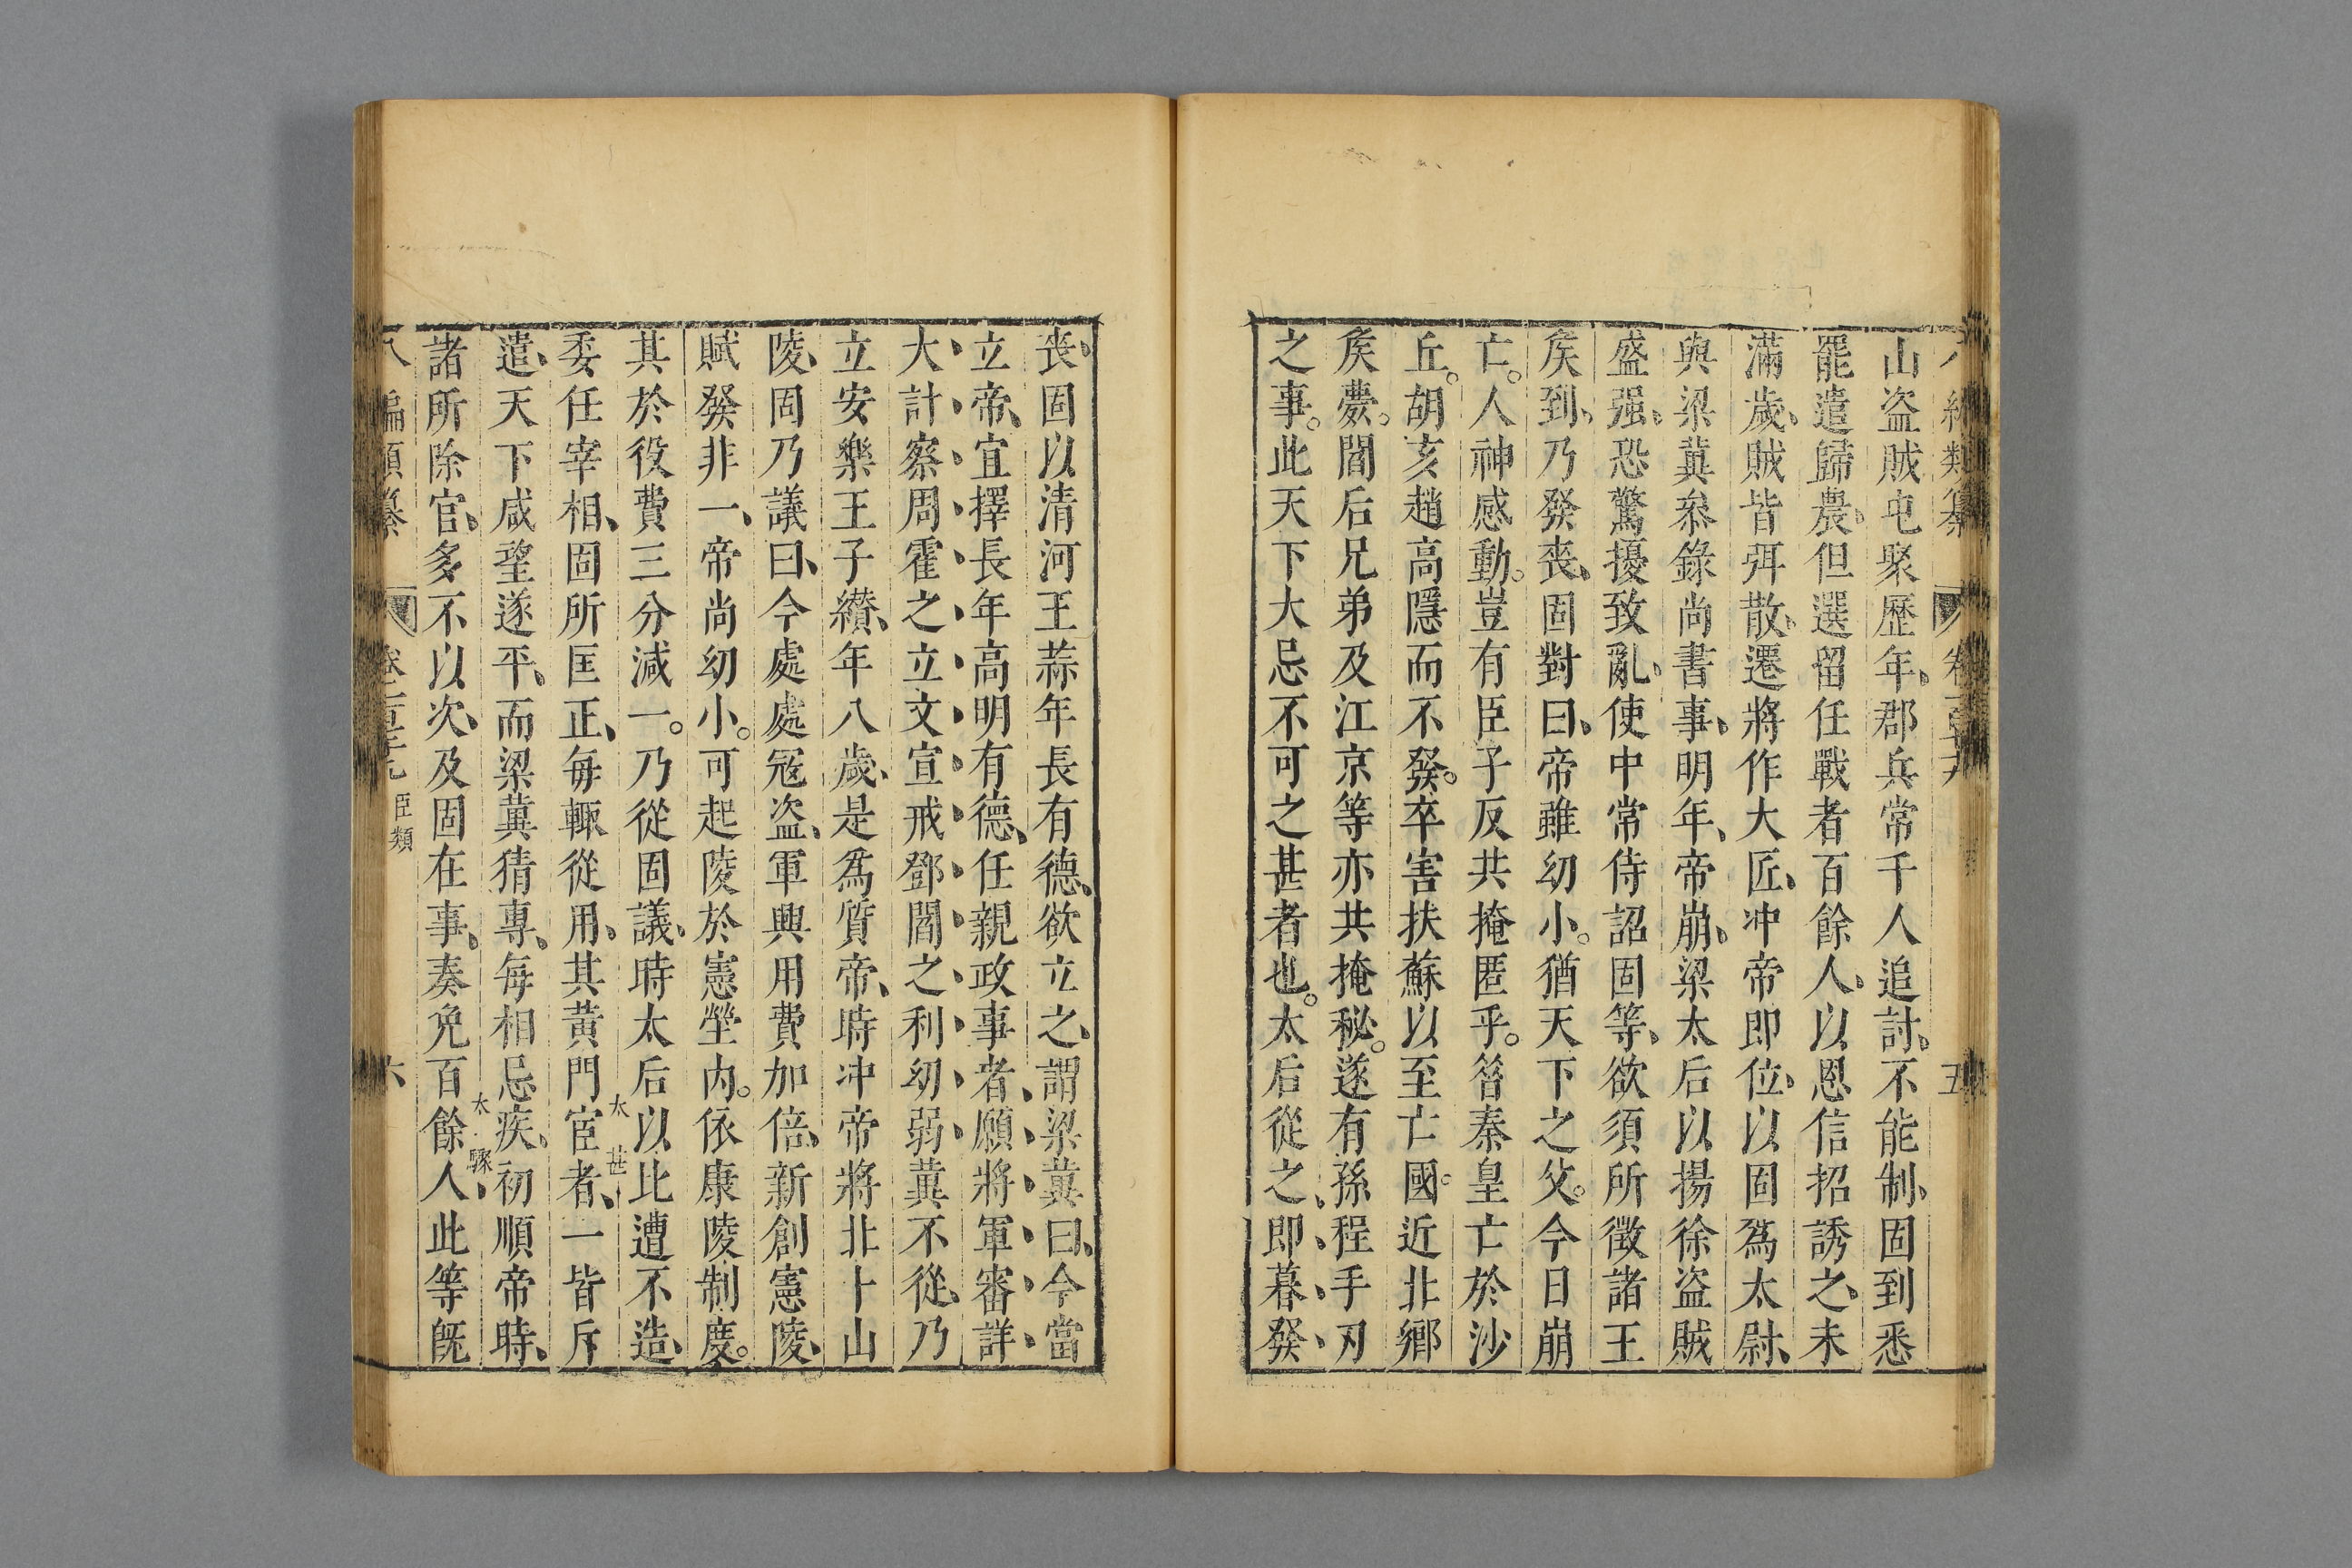 山盜賊屯聚歷年、郡兵常千人追討、不能制、固到悉
罷遣歸農、但選留任戰者百餘人、以恩信招誘之、未
滿歲、賊皆弭散、遷將作大匠、冲帝即位、以固爲太尉、
與梁冀叅錄尚書事、明年、帝崩、梁太后以揚徐盜賊
盛强、恐驚擾致亂、使中常侍詔固等、欲須所徵諸王
矦到、乃發喪、固對曰、帝雖幼小。猶天下之父。今日崩
亡。人神感動。豈有臣子反共掩匿乎。昝秦皇亡於沙
丘。胡亥趙高隱而不發。卒害扶蘇以至亡國。近北鄉
矦薨。閻后兄弟及江京等亦共掩秘。遂有孫程手刃
之事。此天下大忌不可之甚者也。太后從之、即、暮、發、
喪、固以清河王蒜年長有德、欲立之、謂梁冀曰、今當
立帝、宜擇長年高明有德、任親政事者、願、將、軍、審、詳、
大、計、察、周、霍、之、立、文、宣、戒、鄧、閻、之、利、幼、弱、冀不從、乃
立安樂王子纉、年八歲、是爲質帝、時冲帝將北卜山
陵、固乃議曰、今處處寇盜、軍興用費加倍、新創憲陵、
賦發非一、帝尚幼小。可起陵於憲塋内。依康陵制度。
其於役費三分減一。乃從固議、時太后以比遭不造、
委任宰相、固所匡正、每輒從用、其黃門宦者、一皆斥
遣、天下咸望遂平、而梁冀猜專、每相忌疾、初順帝時、
諸所除官、多不以次、及固在事、奏免百餘人、此等旣
八編類纂 臣類 六